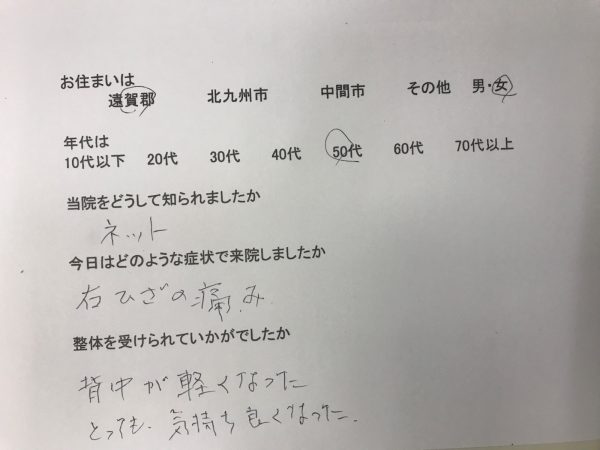 お住まいは
遠賀郡 北九州市 中間市 その他 男・女
年代は
10代以下 20代 30代 40代 50代 60代 70代以上
当院をどうして知られましたか
ネット
今日はどのような症状で来院しましたか
右ひざの痛み
整体を受けられていかがでしたか
背中が軽くなった
とっても、気持ち良くなった。